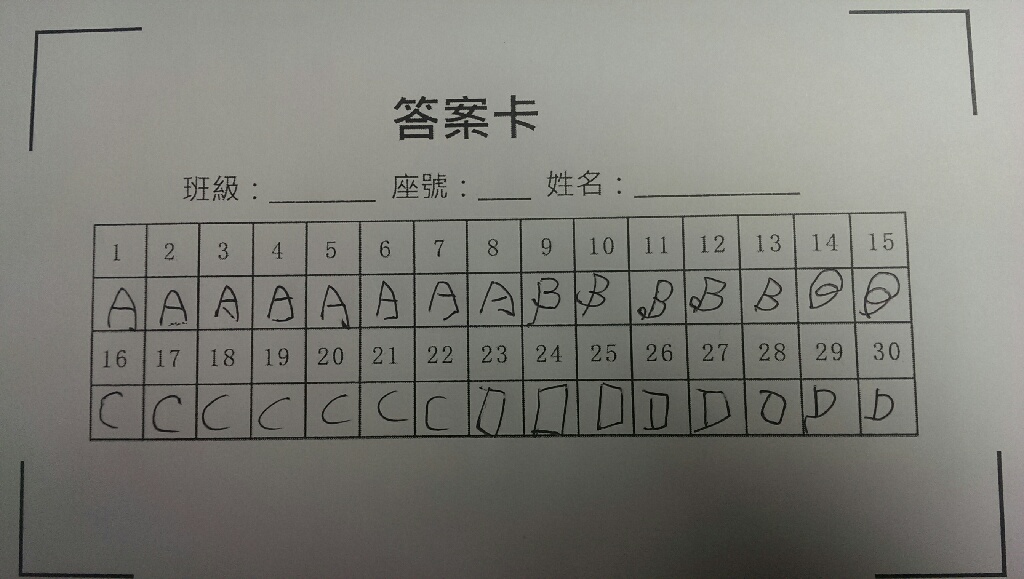 答案卡
班級：________ 座號：____ 姓名：____________
1 2 3 4 5 6 7 8 9 10 11 12 13 14 15
A A A A A A A A B B B B B
16 17 18 19 20 21 22 23 24 25 26 27 28 29 30
C C C C C C C D D D D D D D D